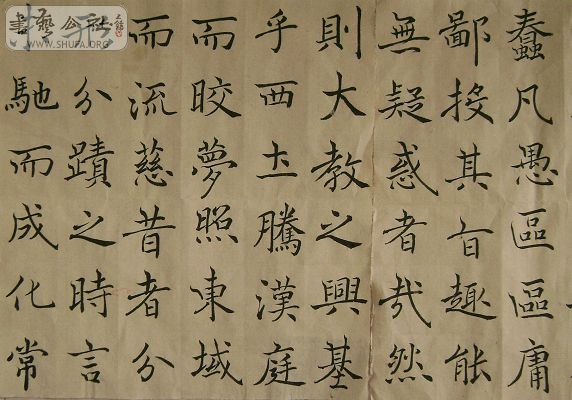 蠢凡愚區區庸
鄙投其旨趣能
無疑惑者哉然
則大教之興基
乎西土騰漢庭
而晈夢照東域
而流慈昔者分
形分蹟之時言
馳而成化常
書藝公社
WWW.SHUFA.ORG